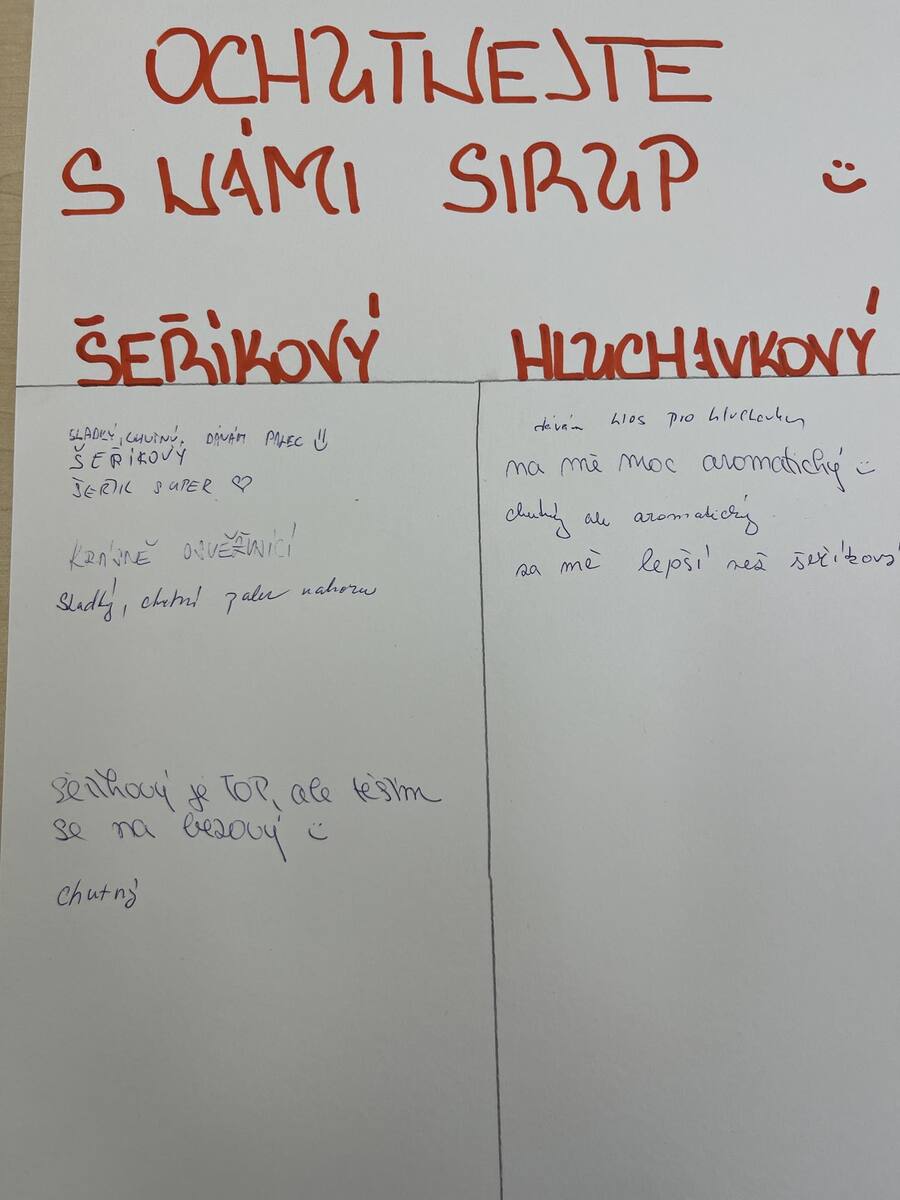 OCHUTNEJTE
S NÁMI SIRUP :)
ŠEŘÍKOVÝ
SLADKÝ, CHUTNÝ, DÁVÁM PALEC :)
ŠEŘÍKOVÝ
ŠEŘÍK SUPER ♡
KRÁSNĚ OSVĚŽUJÍCÍ
Sladký, chutní palec nahoru
šeříkový je TOP, ale těším
se na bezový :)
chutný
HLUCHAVKOVÝ
dávám hlas pro hluchavku
na mě moc aromatický :)
chutný ale aromatický
za mě lepší než šeříkový